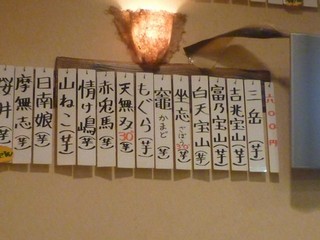 六〇〇円
三岳(芋)
吉兆宝山(芋)
富乃宝山(芋)
白天宝山(芋)
坐忘
竈 かまど(芋)
もぐら(芋)
天無双 30°(芋)
赤兎馬(芋)
情け嶋(芋)
山ねこ(芋)
日南娘(芋)
摩無志(芋)
桜井(芋)